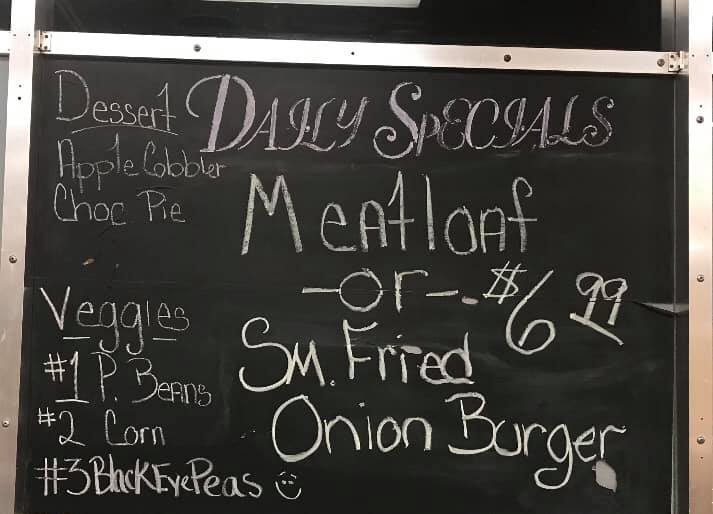 Daily Specials
Meatloaf
-or- $6.99
Sm. Fried
Onion Burger
Dessert
Apple Cobbler
Choc Pie
Veggies
#1 P. Beans
#2 Corn
#3 Black Eye Peas